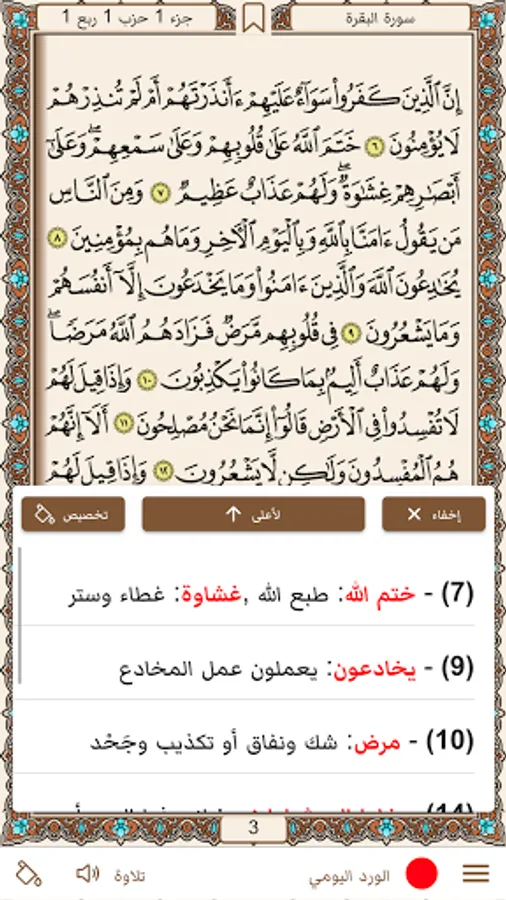 سورة البقرة
جزء 1 حزب 1 ربع 1
إِنَّ ٱلَّذِينَ كَفَرُوا۟ سَوَآءٌ عَلَيْهِمْ ءَأَنذَرْتَهُمْ أَمْ لَمْ تُنذِرْهُمْ
لَا يُؤْمِنُونَ ٦ خَتَمَ ٱللَّهُ عَلَىٰ قُلُوبِهِمْ وَعَلَىٰ سَمْعِهِمْ ۖ وَعَلَىٰٓ
أَبْصَٰرِهِمْ غِشَٰوَةٌ ۖ وَلَهُمْ عَذَابٌ عَظِيمٌ ٧ وَمِنَ ٱلنَّاسِ
مَن يَقُولُ ءَامَنَّا بِٱللَّهِ وَبِٱلْيَوْمِ ٱلْءَاخِرِ وَمَا هُم بِمُؤْمِنِينَ ٨
يُخَٰدِعُونَ ٱللَّهَ وَٱلَّذِينَ ءَامَنُوا۟ وَمَا يَخْدَعُونَ إِلَّآ أَنفُسَهُمْ
وَمَا يَشْعُرُونَ ٩ فِى قُلُوبِهِم مَّرَضٌ فَزَادَهُمُ ٱللَّهُ مَرَضًا ۖ
وَلَهُمْ عَذَابٌ أَلِيمٌۢ بِمَا كَانُوا۟ يَكْذِبُونَ ١٠ وَإِذَا قِيلَ لَهُمْ
لَا تُفْسِدُوا۟ فِى ٱلْأَرْضِ قَالُوٓا۟ إِنَّمَا نَحْنُ مُصْلِحُونَ ١١ أَلَآ إِنَّهُمْ
هُمُ ٱلْمُفْسِدُونَ وَلَٰكِن لَّا يَشْعُرُونَ ١٢ وَإِذَا قِيلَ لَهُمْ
إخفاء
لأعلى
تخصيص
(7) - ختم الله: طبع الله ,غشاوة: غطاء وستر
(9) - يخادعون: يعملون عمل المخادع
(10) - مرض: شك ونفاق أو تكذيب وجَحْد
(14)
3
الورد اليومي
تلاوة